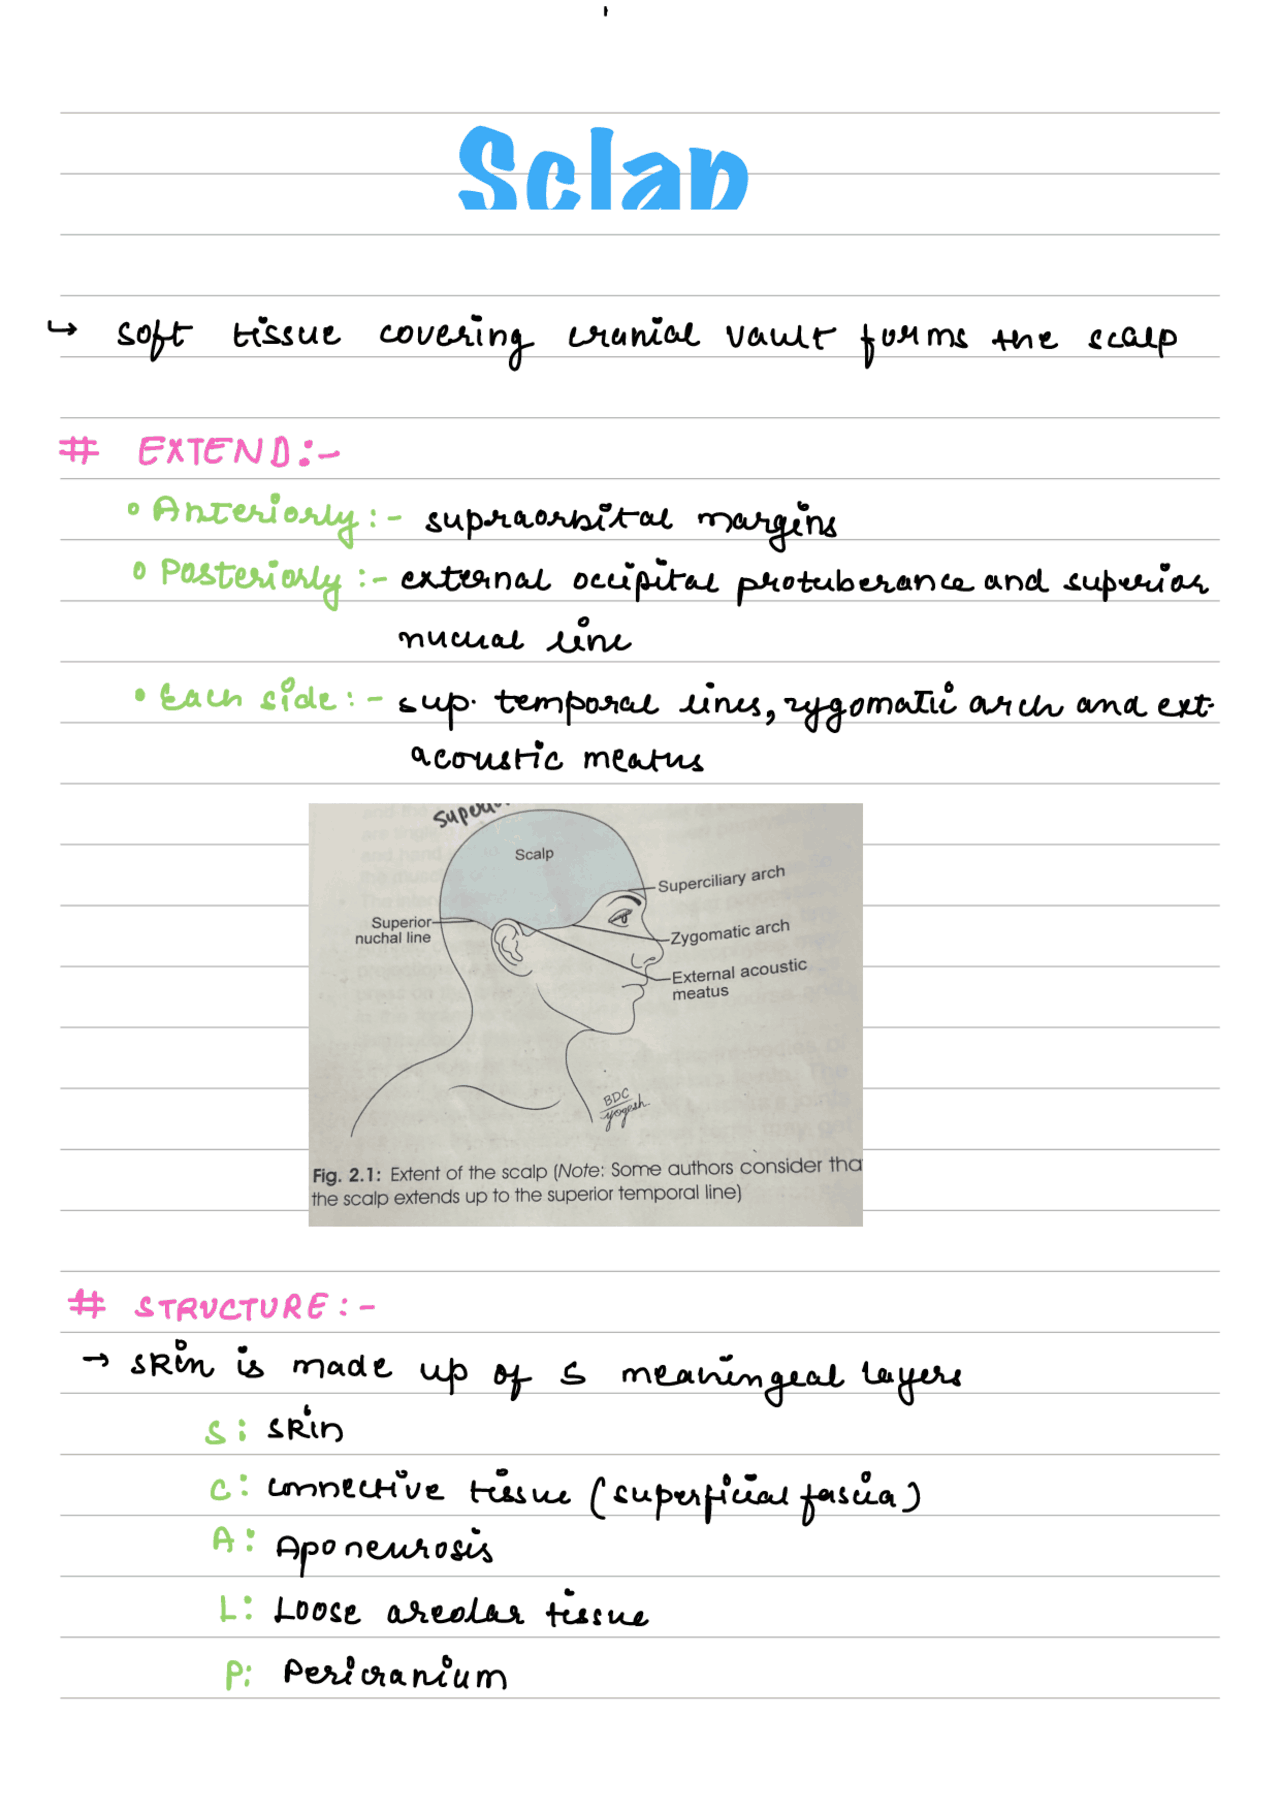 Sclap
↳ soft tissue covering cranial vault forms the scalp
# EXTEND:-
• Anteriorly :- supraorbital margins
• Posteriorly :- external occipital protuberance and superior
nuchal line
• Each side :- sup. temporal lines, zygomatic arch and ext.
acoustic meatus
Scalp
Superciliary arch
Superior
nuchal line
Zygomatic arch
External acoustic
meatus
BDC
yogesh
Fig. 2.1: Extent of the scalp (Note: Some authors consider tha
the scalp extends up to the superior temporal line)
# STRUCTURE :-
→ skin is made up of 5 meaningeal layers
S: skin
C: connective tissue (superficial fascia)
A: Aponeurosis
L: Loose areolar tissue
P: Pericranium